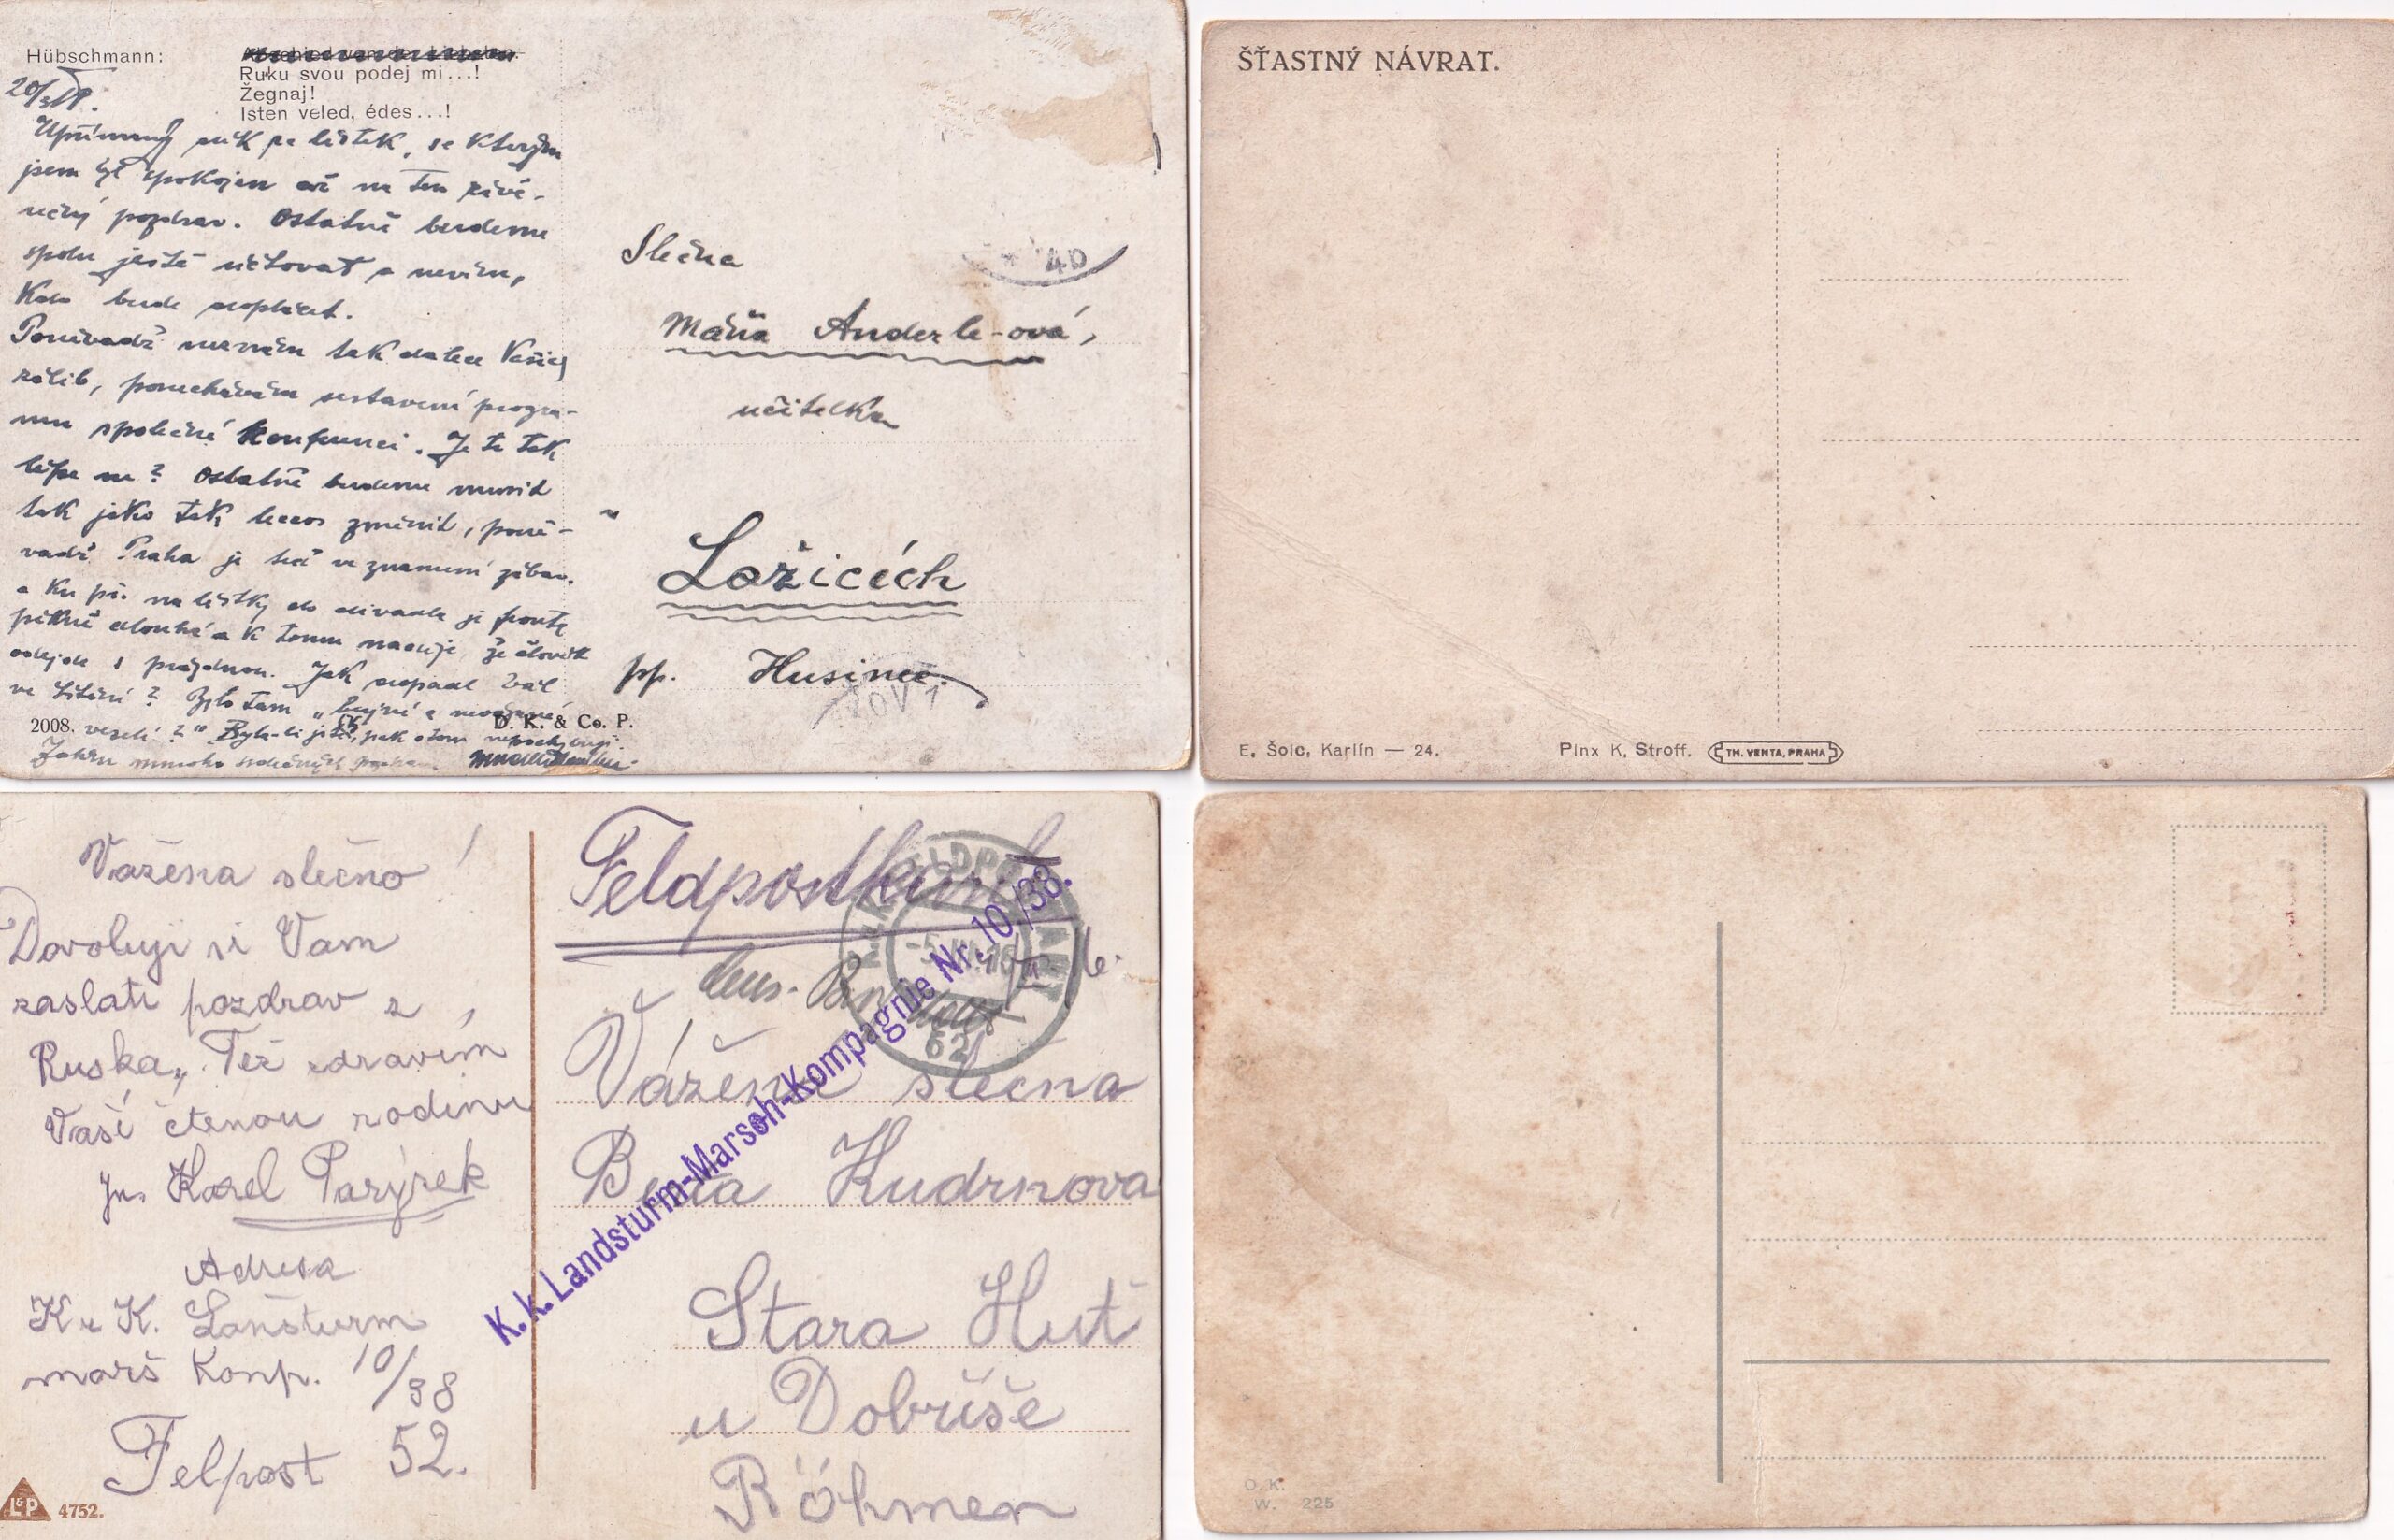 Hübschmann:
Ruku svou podej mi...!
Žegnaj!
Isten veled, édes...!
Upřímný dík za lístek, se kterým
jsem byl spokojen až na ten závě-
rečný pozdrav. Ostatně budeme
spolu ještě účtovat a nevím,
kdo bude doplácet.
Poněvadž neznám tak dalece Vašich
zálib, ponechávám sestavení progra-
mu společné konferenci. Je to tak
lépe ne? Ostatně budeme musit
tak jako tak leccos změnit, poně-
vadž Praha je teď ve znamení zábav.
a ku př. na lístky do divadla je fronta
pěkně dlouhá a k tomu naděje, že člověk
odejde s prázdnou. Jak dopadl bál
ve Lštění? Bylo tam „
veselí?" Byla-li jste, pak o tom nepochybuji.
mnoho srdečných
2008.
D. K. & Co. P.
40
Slečna
Máňa Anderle-ová,
učitelka
Lažicích
pp. Husinec.
ŠŤASTNÝ NÁVRAT.
E. Šolc, Karlín — 24.
Pinx K. Stroff.
TH. VENTA, PRAHA
Važena slečno!
Dovoluji si Vam
zaslati pozdrav z
Ruska,, Též zdravím
Vaší ctěnou rodinu
Karel Parýzek
Adresa
K u K. Lanšturm
marš Konp. 10/38
Felpost 52.
L&P
4752.
Feldpostkarte
K. k. Landsturm-Marsch-Kompagnie Nr. 10/38.
Vážená slečna
Kudrnova
Stara Huť
u Dobříše
Böhmen
O. K.
W. 225